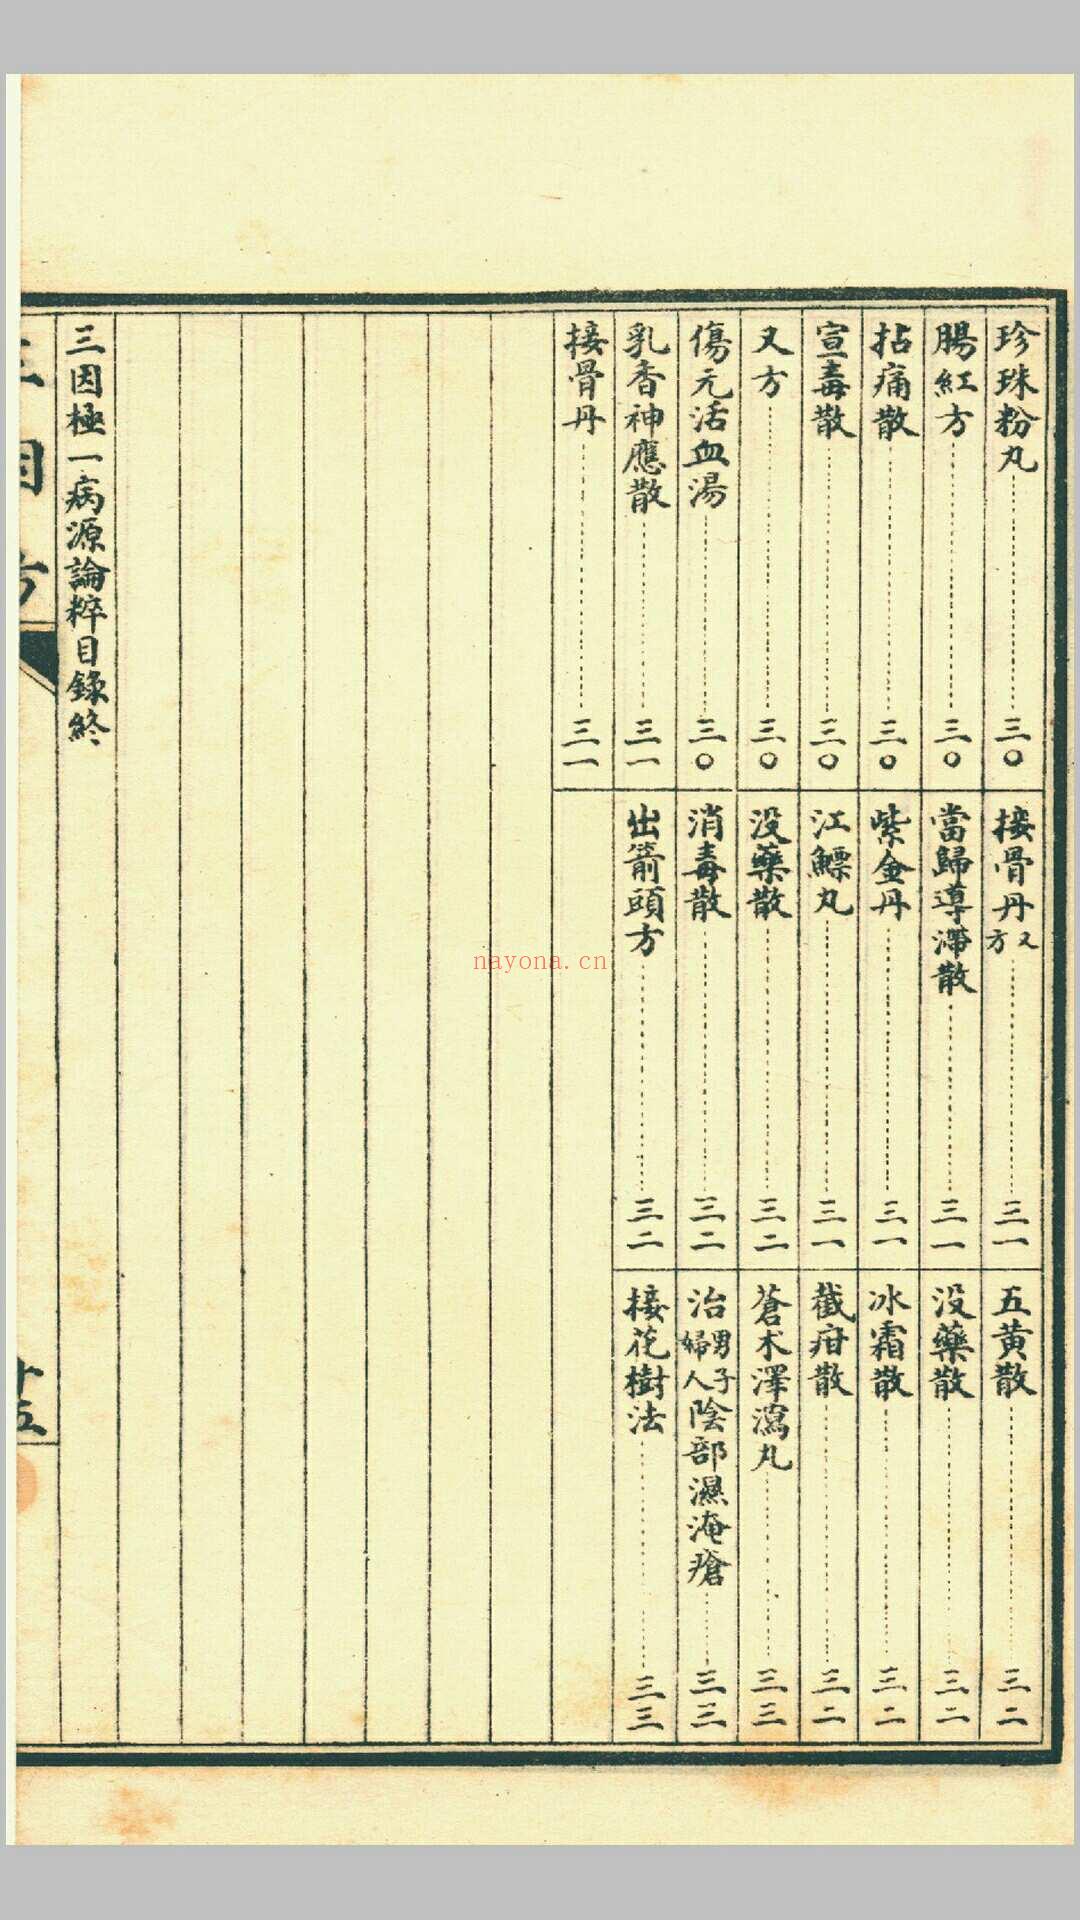 珍珠粉丸 三〇
腸紅方 三〇
拈痛散 三〇
宣毒散 三〇
又方 三〇
傷元活血湯 三〇
乳香神應散 三一
接骨丹 三一
接骨丹又方 三一
當歸導滯散 三一
紫金丹 三一
江鰾丸 三一
没藥散 三二
消毒散 三二
出箭頭方 三二
五黄散 三二
没藥散 三二
冰霜散 三二
截疳散 三二
蒼朮澤瀉丸 三三
治男子婦人陰部濕淹瘡 三三
接花樹法 三三
三因極一病源論粹目錄終
三因方
十五
nayona.cn